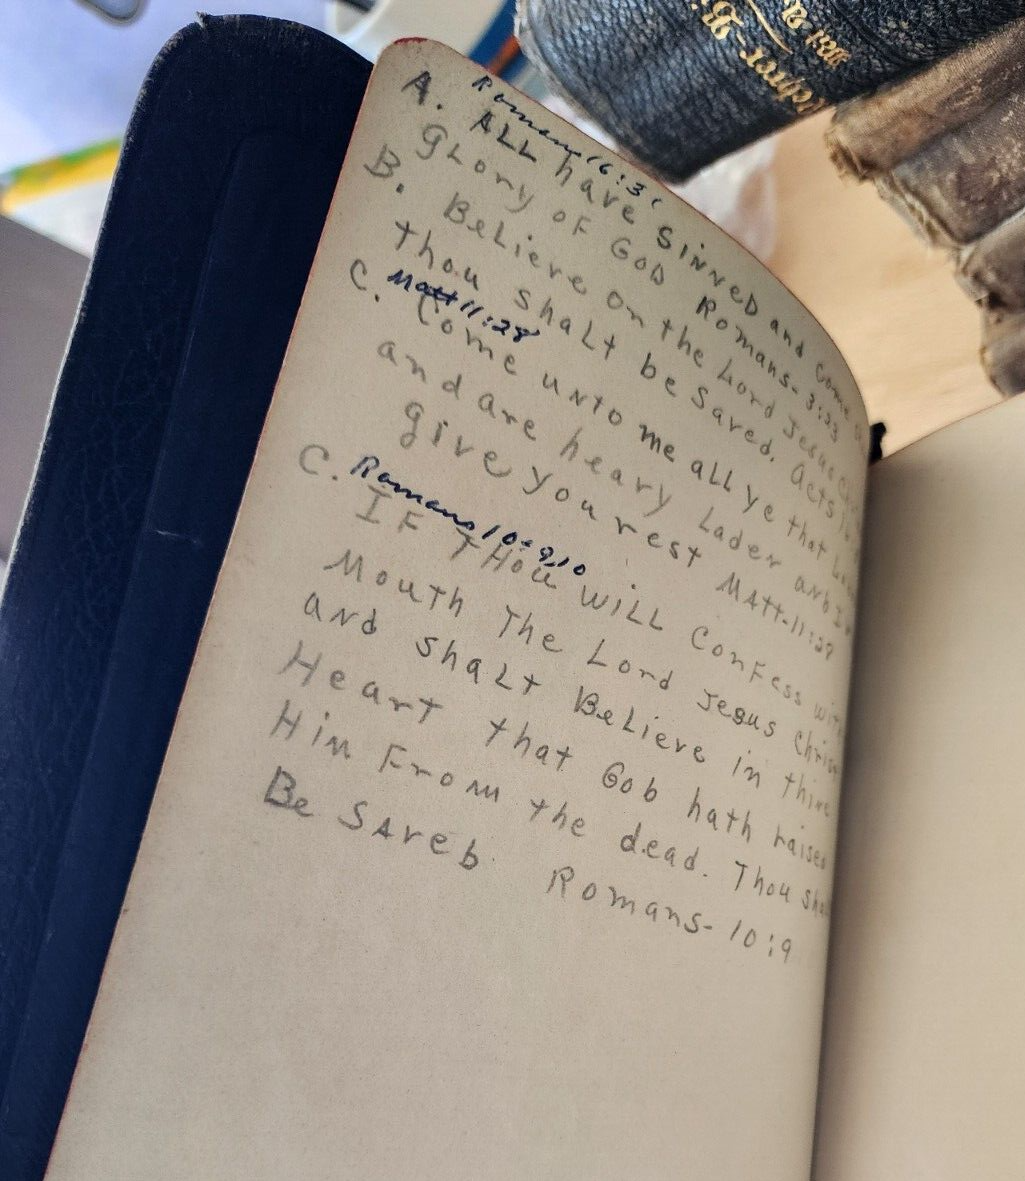 Romans 16:31
A. ALL have SiNNeD and Come
gLory oF GoD Romans- 3:23
B. BeLieve on the Lord Jesus
thou shaLt be Saved. Acts
C. Matt 11:28
Come uNto me aLL ye that
and are heavy Laden
give you rest MAtt-11:28
C. Romans 10-9,10
IF THou wiLL ConFess
Mouth The Lord Jesus
aNd shaLt BeLieve in thine
Heart that Gob hath raised
HiM From the dead. Thou
Be SAveb Romans- 10:9